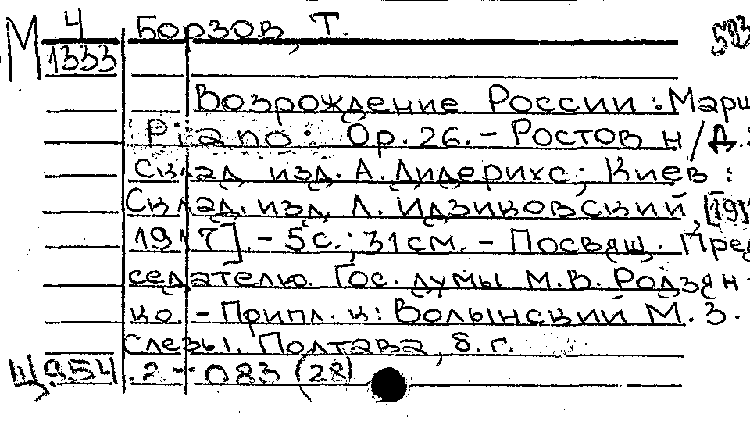 М 4 Борзов, Т.
1333
Возрождение России : Марш
Piano: Ор. 26. - Ростов н/Д. :
Склад изд. А. Лидерихс; Киев :
Склад. изд. Л. Идзиковский, [191
1917]. - 5 с.; 31 см. - Посвящ. Пред
седателю Гос. думы М.В. Родзян-
ко. - Припл. к: Волынский М. З.
Слезы. Полтава, б. г.
Ц 954 .2 - 083 (28)